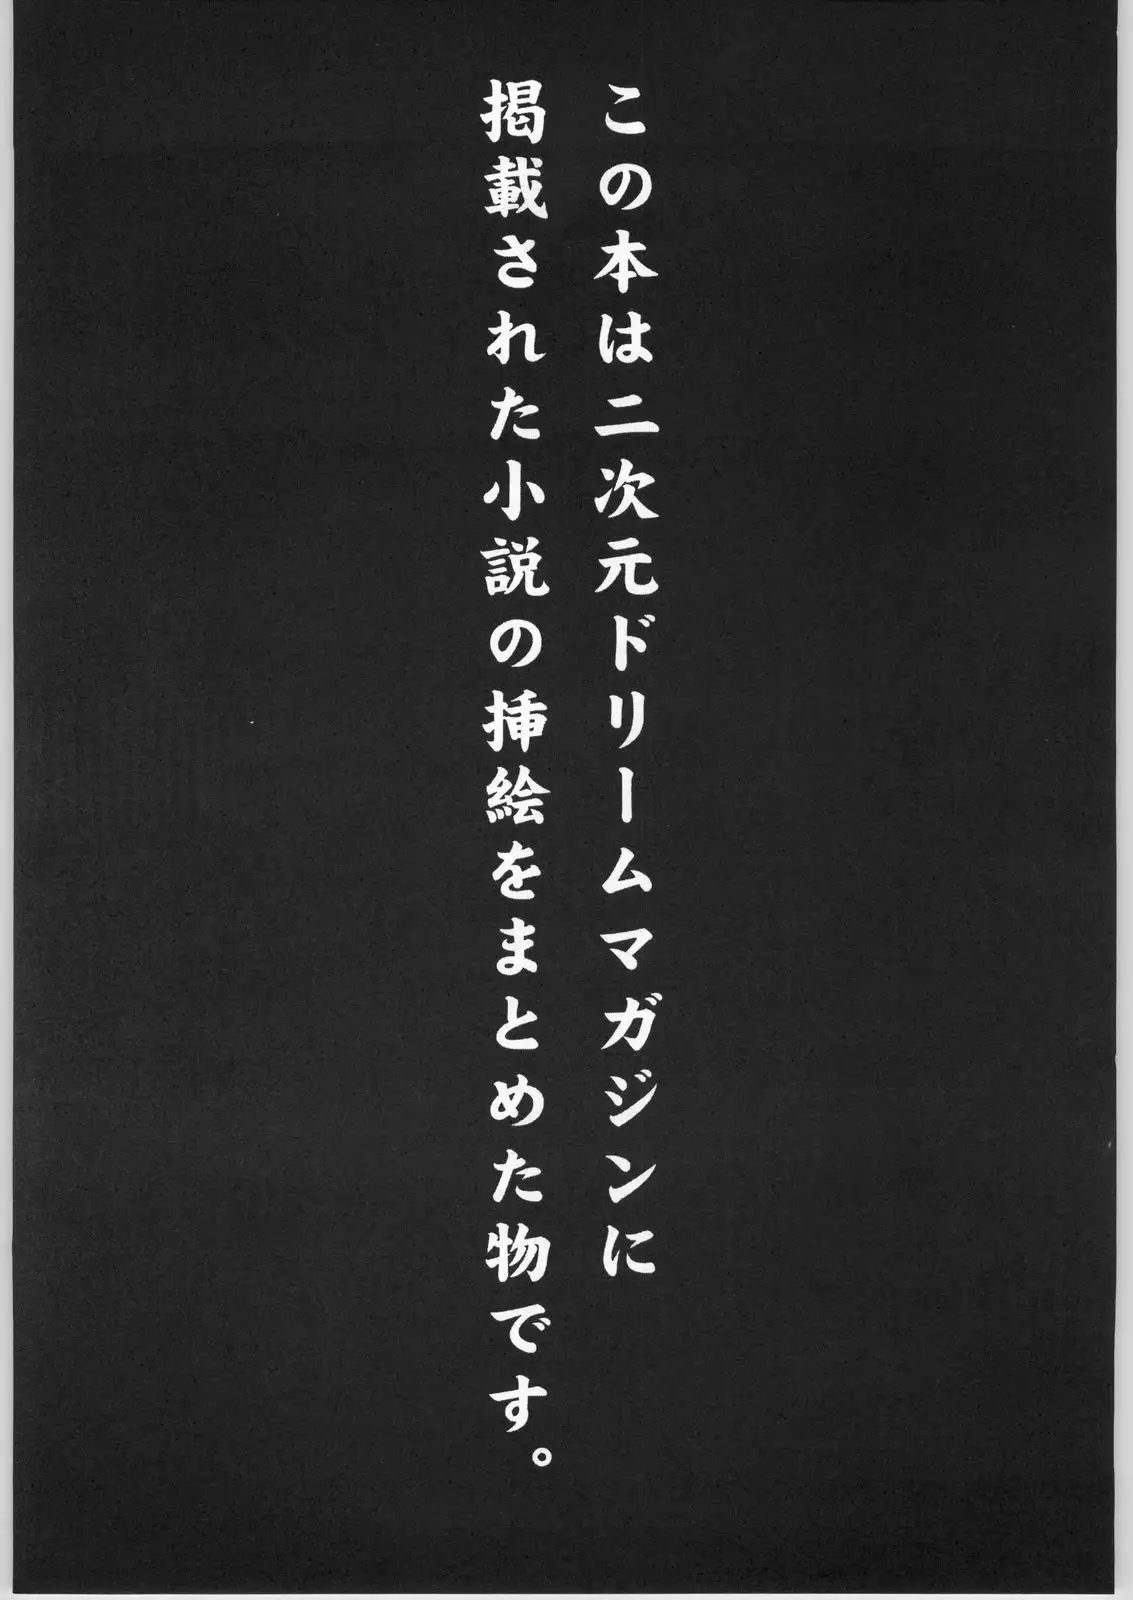 この本は二次元ドリームマガジンに
掲載された小説の挿絵をまとめた物です。